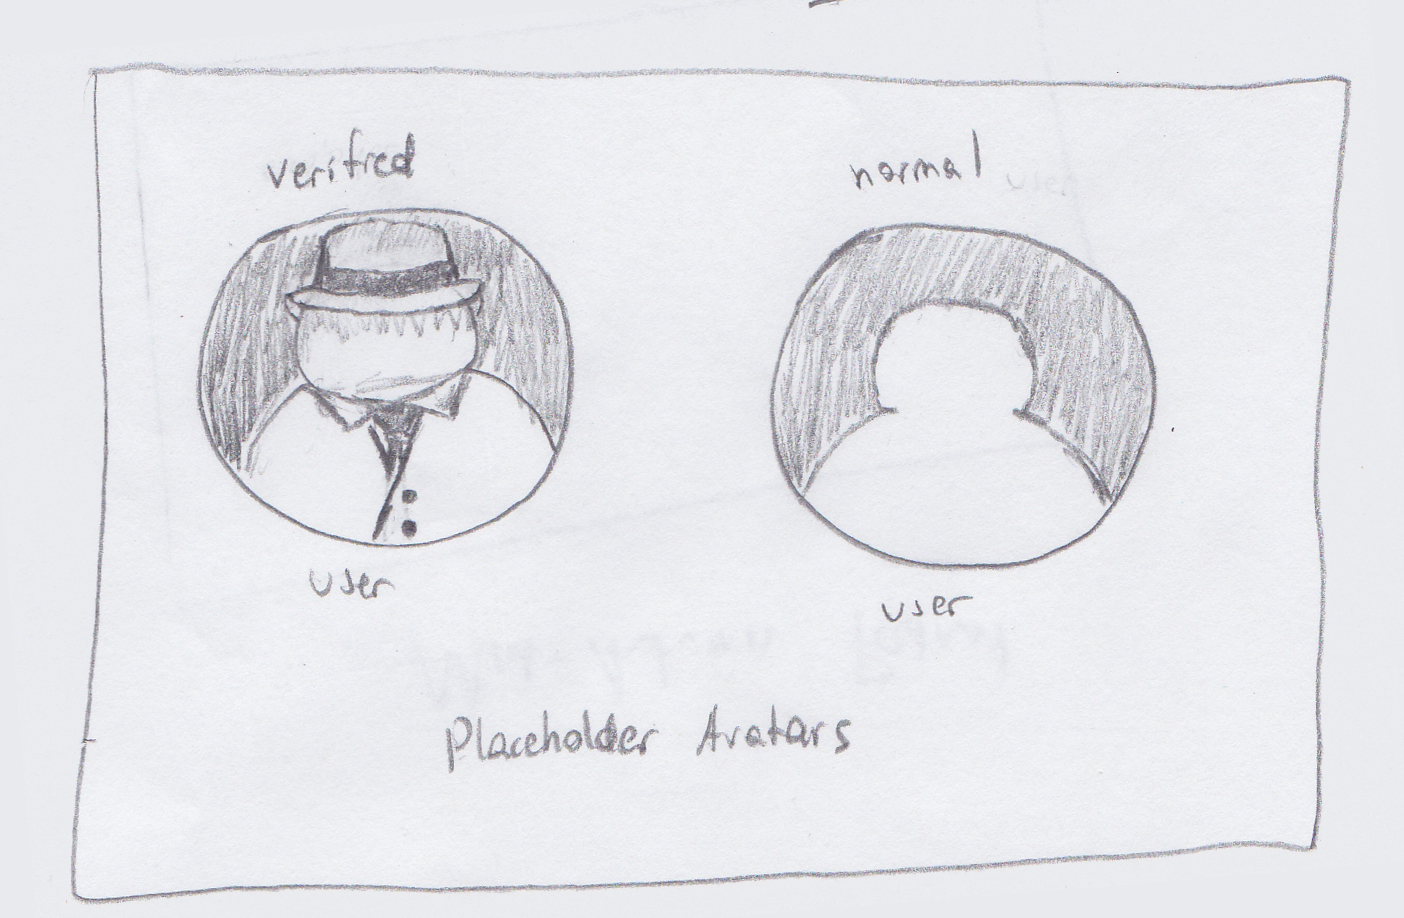 verified
normal
user
user
Placeholder Avatars